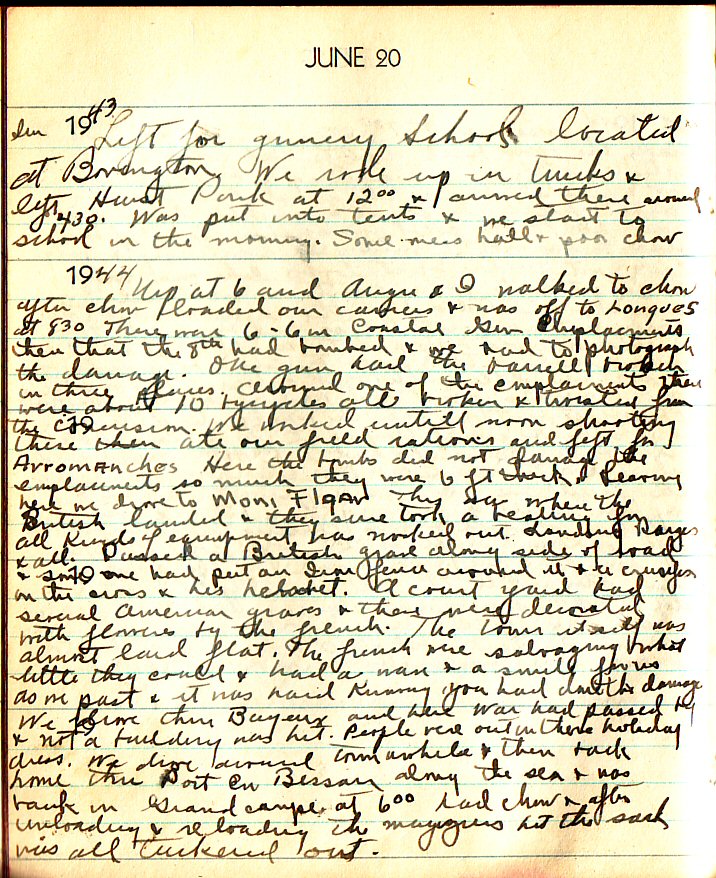 JUNE 20
Sun 1943
Left for gunnery School located
at Bovington. We rode up in trucks &
left Hurst Park at 12⁰⁰ & arrived there around
430. Was put into tents & we start to
school in the morning. Some mess hall & poor chow
1944 Up at 6 and Angie & I walked to chow
after chow loaded our cameras & was off to LONGUES
at 830 There were 6 - 6in Coastal Gun Emplacements
then that the 8th had bombed & we had to photograph
the damage. One gun had the barrell broken
in three places. Around one of the emplacements there
were about 10 bycycles all broken & twisted from
the We worked untill noon shooting
these then ate our field rations and left for
ARROMANCHES Here the bombs did not damage the
emplacements so much they were 6 ft thick. Leaving
here we drove to This was where the
British landed & they sure took a beating for
all kinds of equipment was knocked out. Landing Barges
& all. Passed a British grave along side of road
& some one had put an Iron fence around it & a crucifix
on the cross & his helmet. A court yard had
several American graves & these were decorated
with flowers by the french. The town itself was
almost laid flat. The french were salvaging what
little they could & had a wave & a smile for us
as we past & it was hard knowing you had done the damage
We drove thru Bayeux and here War had passed by
& not a building was hit. People were out in there holiday
dress. We drove around town awhile & then back
home thru Port En Bessan along the sea & was
back in Grandcampe at 6⁰⁰ had chow & after
unloading & reloading the magazines hit the sack
was all tuckered out.